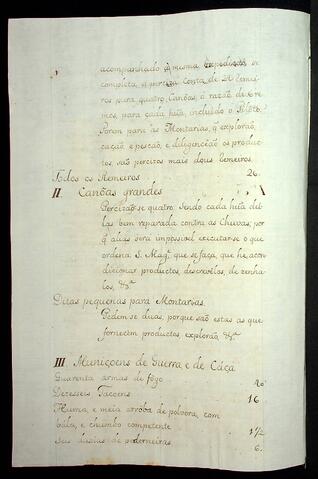 acompanhado a mesma expedição se
completa a perciza conta de 24 Remei-
ros para quatro Canôas, á razão de 6 re-
mos, para cada hũa, incluido o Piloto.
Porem para as Montarias, q̃ explorão,
cação e pescão, e diligenceão os produc-
tos, são percizos mais dous Remeiros
Todos os Remeiros 26.
II. Canôas grandes
Percizão-se quatro. Sendo cada hũa del-
las bem reparada contra as Chuvas; por
q̃ aliás será impossivel executar-se o que
ordena S. Mag.e que se faça, que he, acon-
dicionar productos, descrevellos, dezenha-
los, &.a
Ditas pequenas para Montarias.
Pedem-se duas, porque são estas as que
fornecem productos, explorão, &.a
III Municoens de Guerra e de Cáça
Quarenta armas de fogo 40
Dezeseis Tacoens 16
Huma, e meia arroba de polvora, com
bála, e chumbo competente 1 1/2
Seis duzias de pederneiras 6.